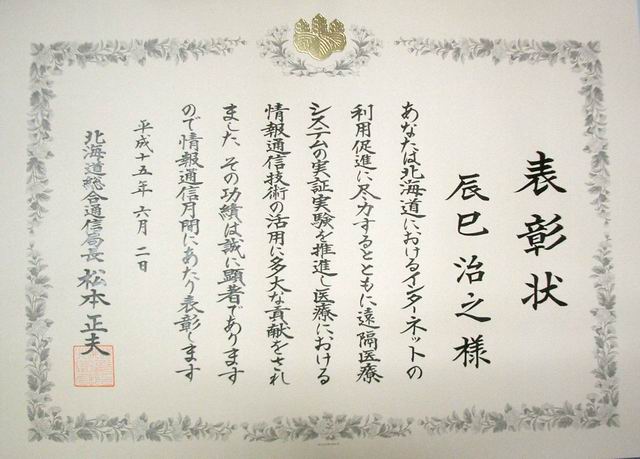 表彰状
辰巳治之様
あなたは北海道におけるインターネットの
利用促進に尽力するとともに遠隔医療
システムの実証実験を推進し医療における
情報通信技術の活用に多大な貢献をされ
ました その功績は誠に顕著であります
ので情報通信月間にあたり表彰します
平成十五年六月二日
北海道総合通信局長 松本正夫